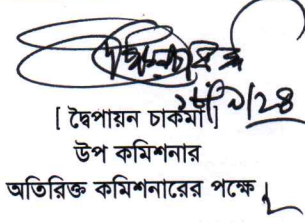 [ দ্বৈপায়ন চাকমা ]
উপ কমিশনার
অতিরিক্ত কমিশনারের পক্ষে